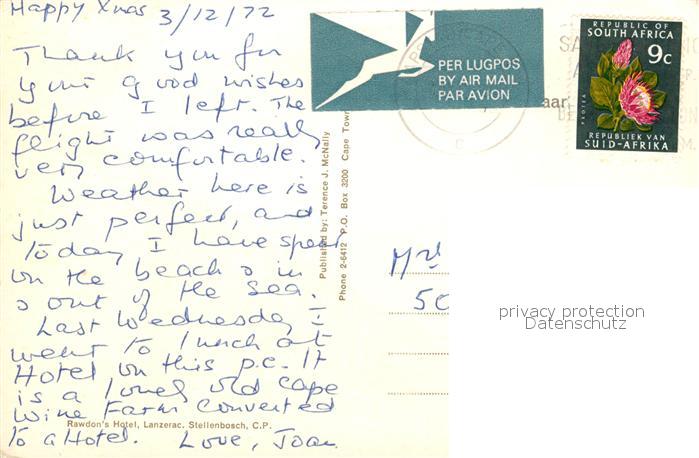 Happy Xmas 3/12/72
Thank you for
your good wishes
before I left. The
flight was really
very comfortable.
Weather here is
just perfect, and
today I have spent
on the beach & in
& out of the sea.
Last Wednesday I
went to lunch at
Hotel on this p.c. It
is a lovely old Cape
Wine Farm converted
to a Hotel. Love, Joan
Rawdon's Hotel, Lanzerac, Stellenbosch, C.P.
Published by: Terence J. McNally
Phone 2-6412 P.O. Box 3200 Cape Town
PER LUGPOS
BY AIR MAIL
PAR AVION
REPUBLIC OF
SOUTH AFRICA
9c
PROTEA
REPUBLIEK VAN
SUID-AFRIKA
Mrs
50
privacy protection
Datenschutz